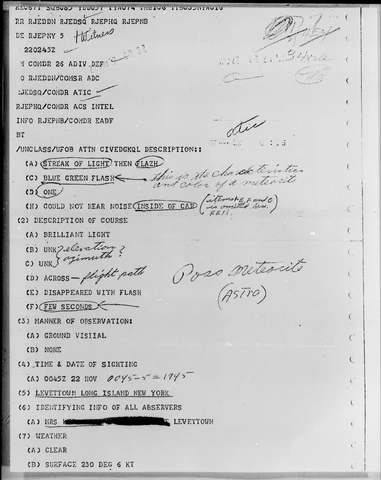 RR RJEDDN RJEDSQ RJEPHQ RJEPNB
DE RJEPNY 5 Witness
220245Z
M COMDR 26 ADIV DEF
O RJEDDN/COMSR ADC
RJEDSQ/COMDR ATIC
RJEPHQ/COMDR ACS INTEL
INFO RJEPNB/COMDR EADF
BT atic
/UNCLASS/UFOB ATTN CIVEDGKQL DESCRIPTION::
(A) STREAK OF LIGHT THEN FLAZH
(C) BLUE GREEN FLASH this is the characteristics
and color of a meteorite
(D) ONE
(H) COULD NOT HEAR NOISE INSIDE OF CAR (items E, F and G
is omitted from
(2) DESCRIPTION OF COURSE
(A) BRILLIANT LIGHT
(B) UNK elevation
azimuth?
C) UNK
(D) ACROSS - flight path
Poss Meteorite
(E) DISAPPEARED WITH FLASH
(ASTRO)
(F) FEW SECONDS
(3) MANNER OF OBSERVATION:
(A) GROUND VISIIAL
(B) NONE
(4) TIME & DATE OF SIGHTING
(A) 0045Z 22 NOV 0045-5=1945
(5) LEVETTOWN LONG ISLAND NEW YORK
(6) IDENTIFYING INFO OF ALL ABSERVERS
(A) MRS LEVETTOWN
(7) WEATHER
(A) CLEAR
(B) SURFACE 230 DEG 6 KT